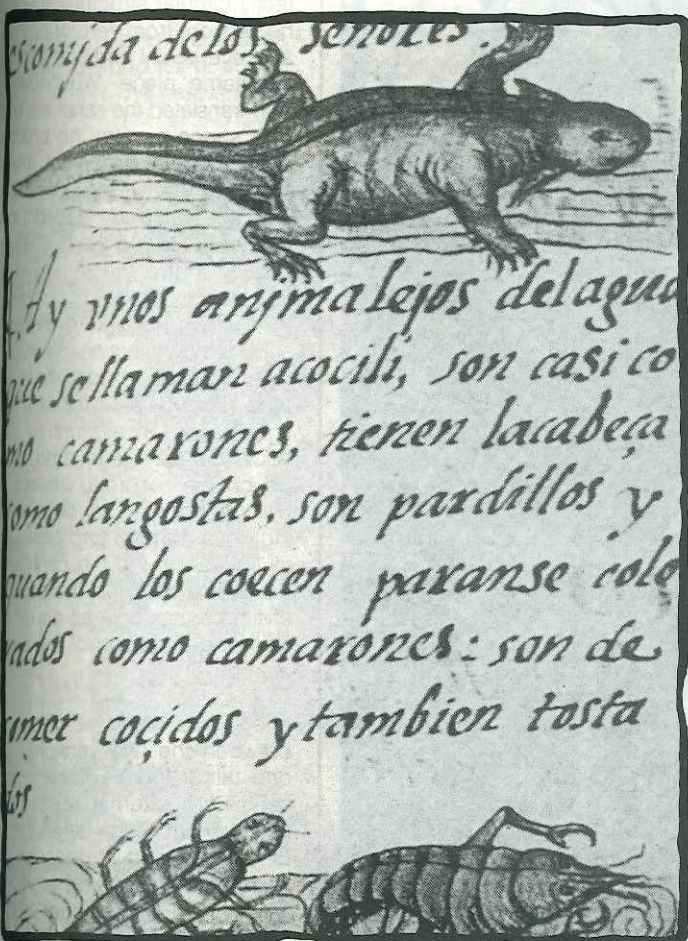 escomjda delos señores.
¶. Ay vnos anjmalejos delagua
que sellaman acocili, son casi co
mo camarones, tienen lacabeça
como langostas, son pardillos y
quando los coecen paranse colo
rados como camarones: son de
comer coçidos y tambien tosta
dos